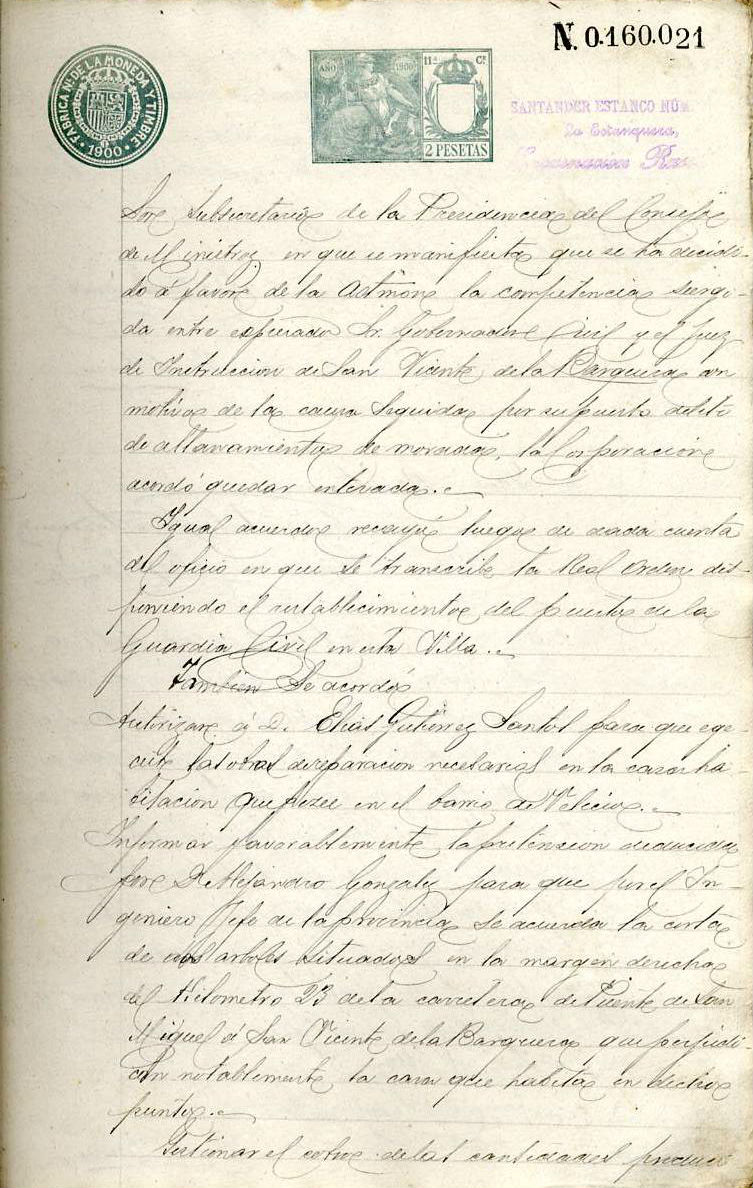 N. 0.160.021
FABRICA N. DE LA MONEDA Y TIMBRE
1900
AÑO 1900
11ª Cl.
2 PESETAS
SANTANDER ESTANCO NÚM
La Estanquera,
Sor Subsecretario de la Presidencia del Consejo
de Ministros en que se manifiesta que se ha decidi-
do á favor de la Admon la competencia surgi-
da entre espresado Sr. Gobernador Civil y el Juez
de Instruccion de San Vicente de la Barquera con
motivo de la causa seguida por supuesto delito
de allanamiento de morada, la Corporacion
acordó quedar enterada.
Igual acuerdo recayó luego de dada cuenta
del oficio en que se transcribe la Real orden dis-
poniendo el restablecimiento del puesto de la
Guardia Civil en esta Villa.
Tambien se acordó
Autorizar á D. Elias Gutierrez Santos para que ege-
cute las obras de reparacion necesarias en la casa ha-
bitacion que posee en el barrio de Velecio.
Informar favorablemente la pretension deducida
por D. Alejandro Gonzalez para que por el In-
geniero Jefe de la provincia se acuerda la corta
de dos arboles situados en la margen derecha
del Kilometro 23 de la carretera de Puente de San
Miguel á San Vicente de la Barquera que perjudi-
can notablemente la casa que habita en dicho
punto.
Gestionar el cobro de las cantidades produci